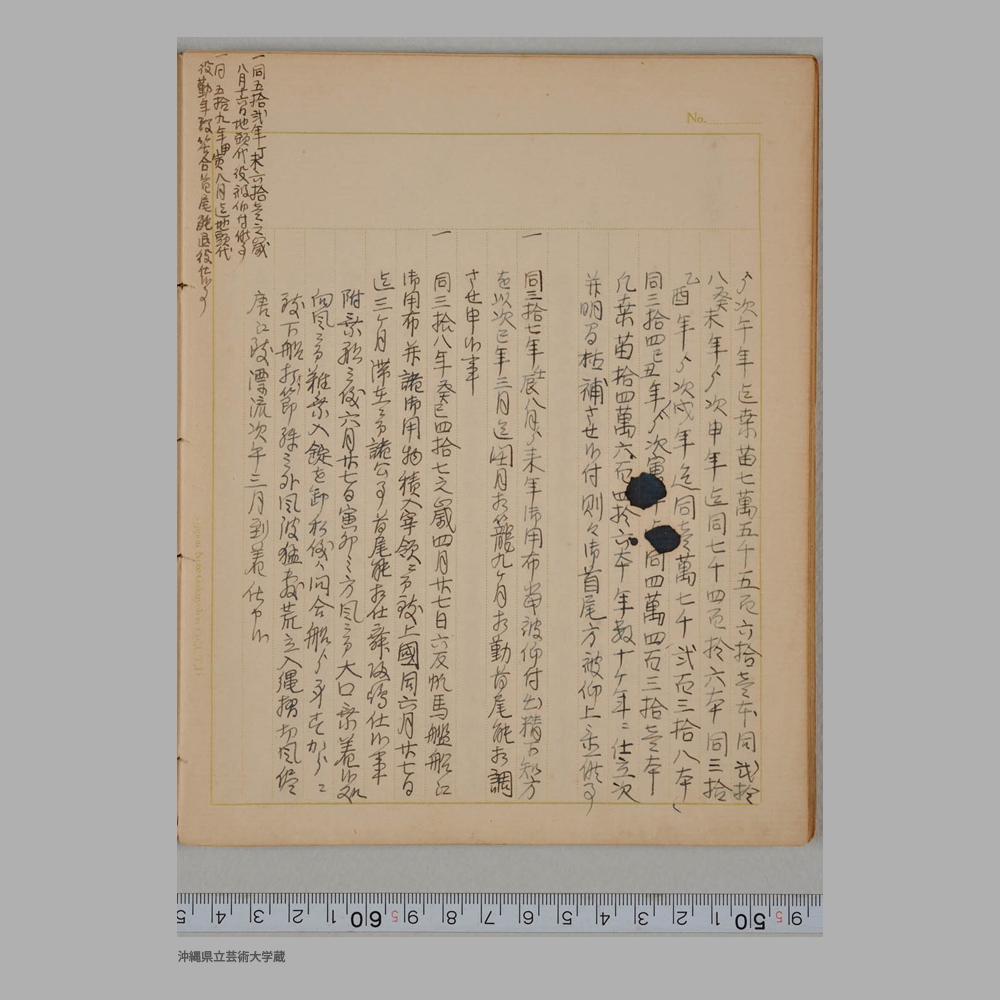 ゟ次午年迄桑苗七萬五千五百六拾壱本同弐拾
八癸未年ゟ次申年迄同七千四百拾六本同三拾
乙酉年ゟ次戌年迄同壱萬七千弐百三拾八本
同三拾四己丑年ゟ次寅年迄同四萬四百三拾壱本
凡桑苗拾四萬六百四拾六本年数十ケ年ニ仕立次
并明間枯補させ付則々御首尾方被仰上置候事
一 同三拾七年壬辰八月ゟ来年御用布當被仰付出精下知方
を以次巳年三月迄閏月相籠九ケ月相勤首尾能相調
させ申候事
一 同三拾八年癸巳四拾七之歳四月廿七日六反帆馬艦船江
御用布并諸御用物積入宰領ニ而致上國同六月廿七日
迄三ケ月滞在ニ而諸公事首尾能相仕舞帰帆仕候事
附乗船之儀六月廿七日寅卯之方風ニ而大口乗着候処
向風ニ而難乗入錠を卸
致下船打節殊之外風波猛敷荒立入縄摺切風侭
唐江致漂流次午三月到着仕申候
一同五拾弐年丁未六拾壱之歳
八月廿六日地頭代役被仰付候事
一同五拾九年甲寅八月迄地頭代
役勤年致
No.
9 50 1 2 3 4 5 6 7 8 9 60 1 2 3 4 5
沖縄県立芸術大学蔵